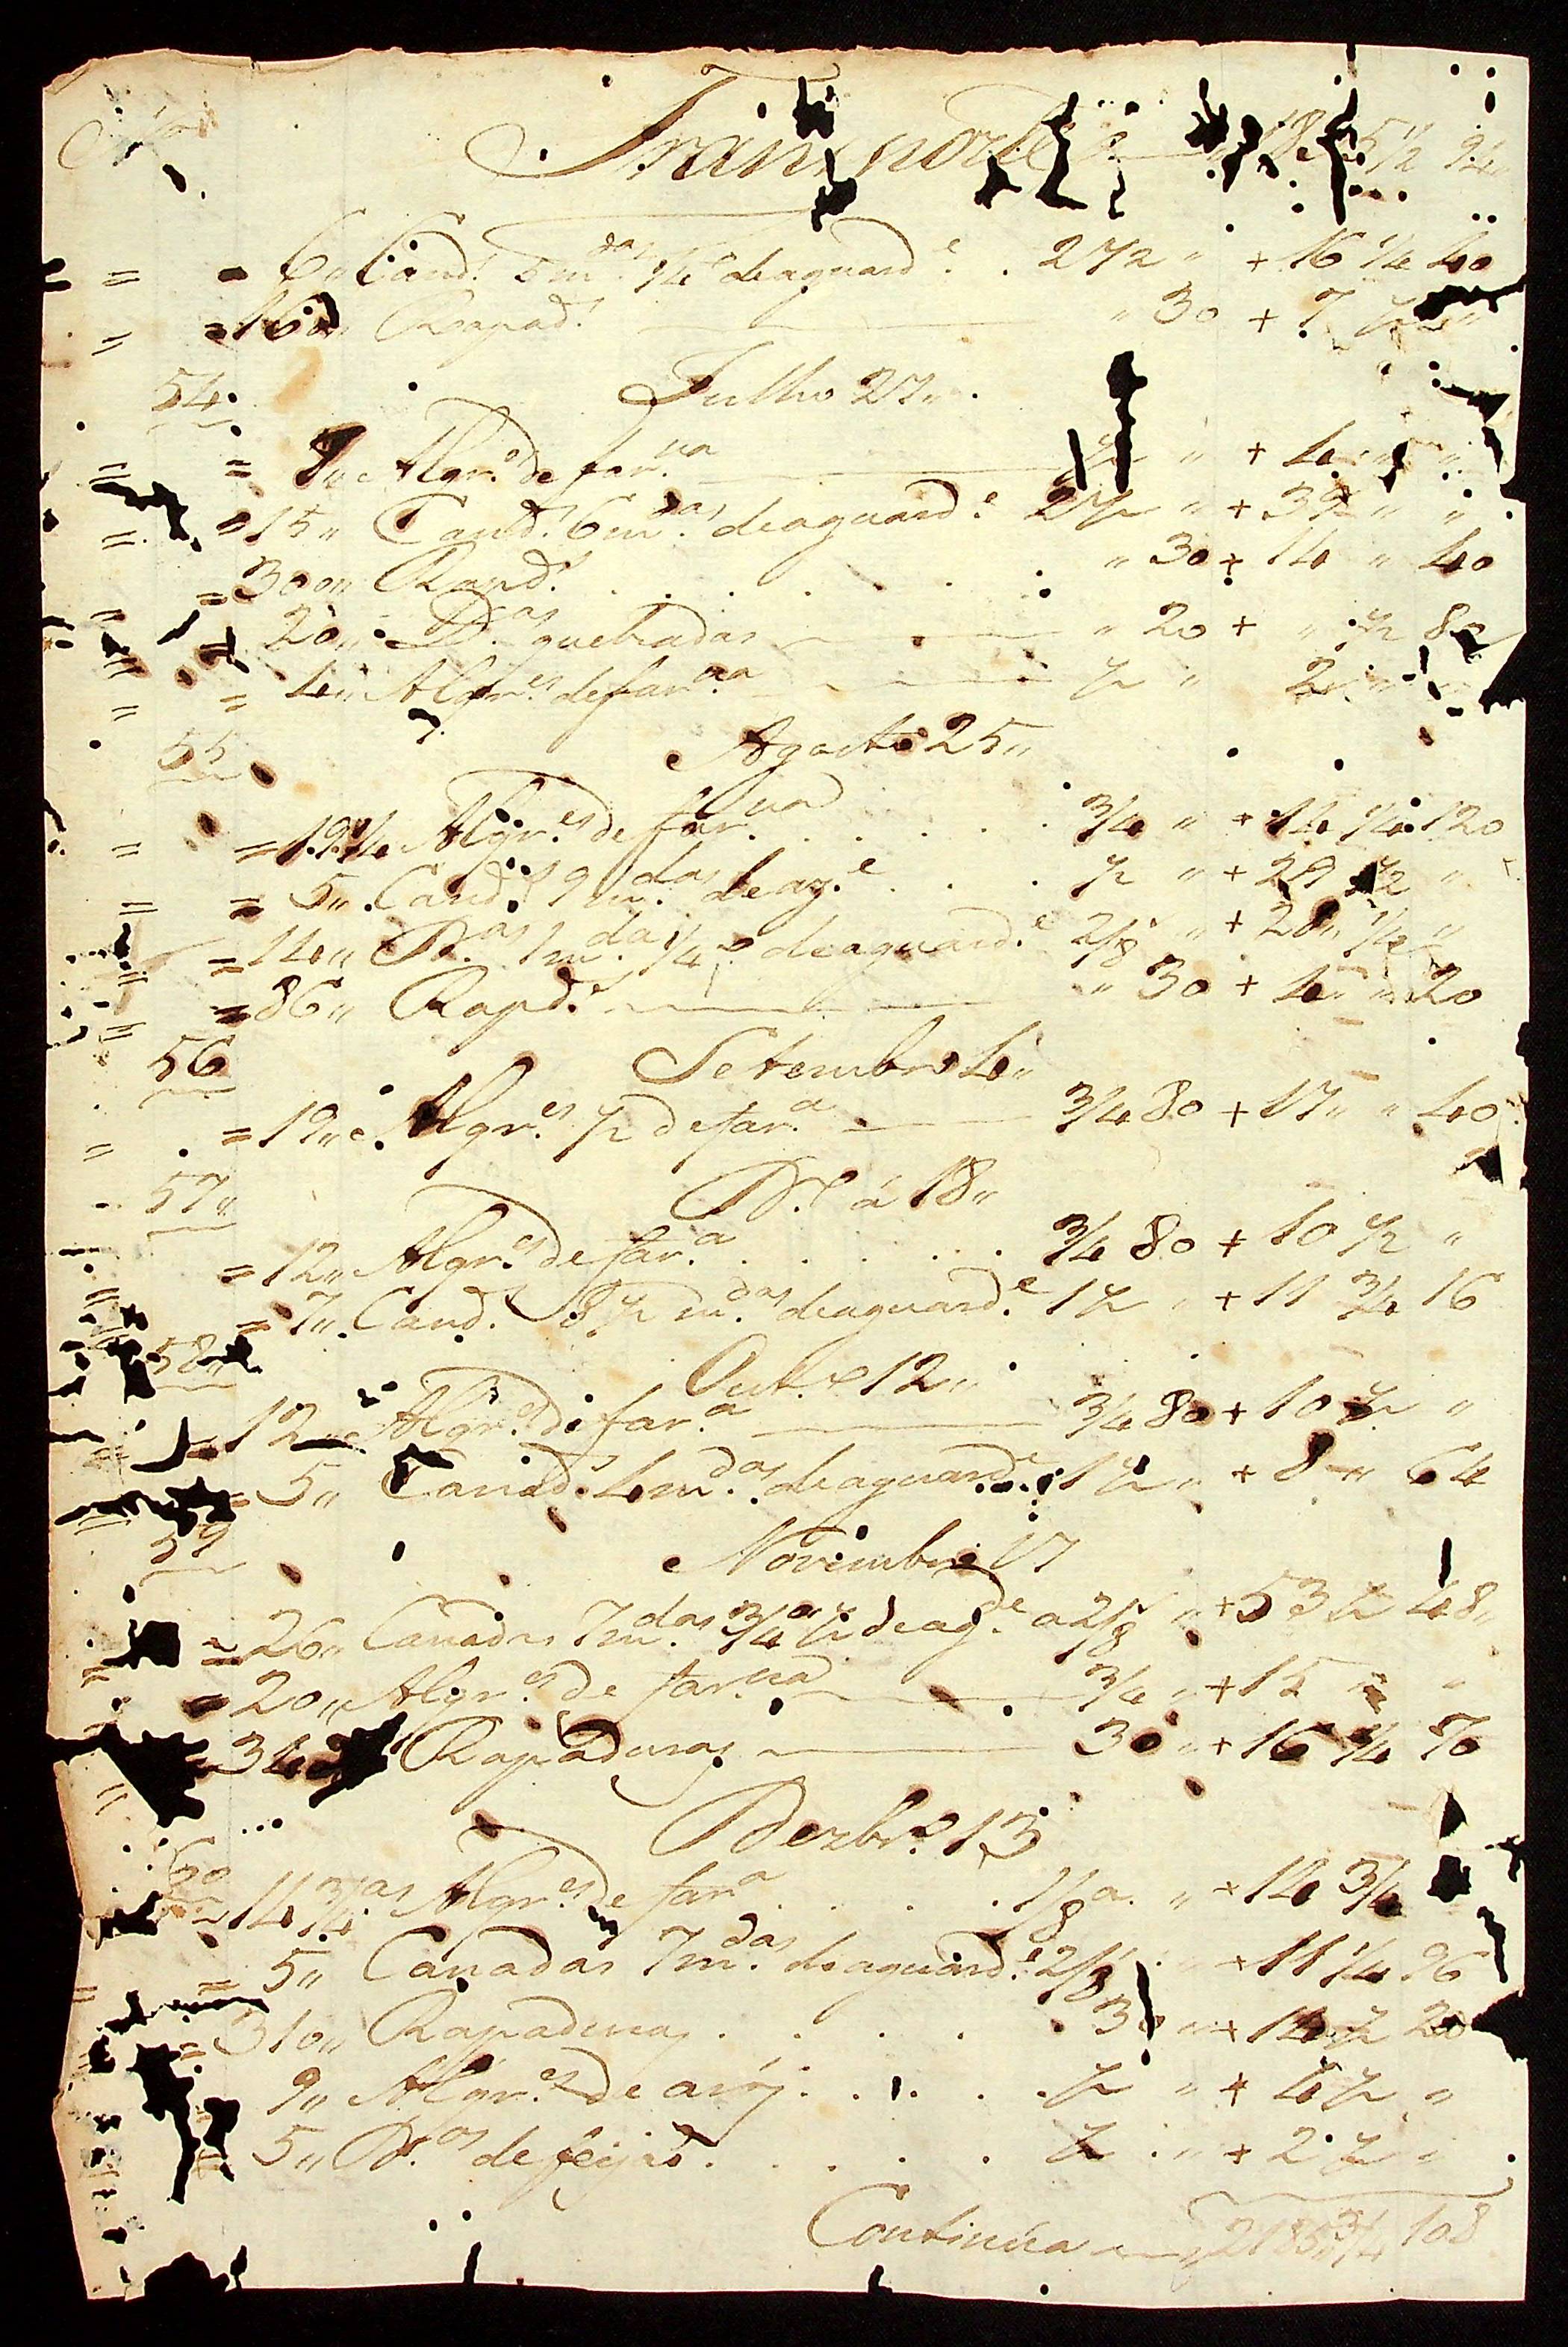 Transporte
6" Canad.s 5 m.das 1/4 deaguard.e . 2 1/2 " + 16 1/4 40
= 160" Rapad.s " 30 + 7 1/2
54 Julho 27"
= 8" Algr.s de far.nha 1/2 " + 4 " "
= 15" Canad.s 6 m.das deaguard.e 2 1/2 " + 39 " "
= 300" Rapd.s . . . . " 30 + 14 " 40
20" D.as quebradas " 20 + " 1/2 80
= 4" Algr.es defar.nha 1/2 " 2 " "
55 Agosto 25"
= 19 1/4 Algr.es de far.nha . . . . 3/4 " + 14 1/4 120
= 5" Canad.s 9 m.das deag.e . . . 1/2 " + 29 1/2 "
= 14" D.as 1 m.da 1/4 deaguard.e 2/8 " + 28" 1/4 "
= 86" Rapd.s " 30 + 4 " 20
56 Setembro 4"
= 19" Algr.es 1/2 defar.a 3/4 80 + 17" " 40
57" D.o á 18"
= 12" Algr.es defar.a . . . . 3/4 80 + 10 1/2 "
= 7" Canad.s 8 1/2 m.das deaguard.e 1 1/2 " + 11 3/4 16
58" Outr.o 12"
12 Algr.es defar.a 3/4 80 + 10 1/2 "
= 5" Canad.s 4 m.das deaguard.e 1 1/2 " + 8 " 64
59 Novimbro 17
= 26" Canadas 7 m.das 3/4 1/2 deag.de a 2/8 " + 53 1/2 48"
= 20" Algr.es de far.nha 3/4 " + 15 " "
Rapaduras 30 " + 16 1/4 70
60 Dezbr.o 13
= 14 3/4.as Algr.es de far.a . . . . 1/8 a. " + 14 3/4
= 5" Canadas 7 m.das deaguard.e 2/8 " + 11 1/4 96
= 310" Rapaduras . . . . 30 " + 14 1/2 20
9" Algr.es de arôz . . . . 1/2 " + 4 1/2 "
= 5" D.os de feijaõ . . . . . 1/2 " + 2 1/2 "
Continúa 2185" 3/4 108